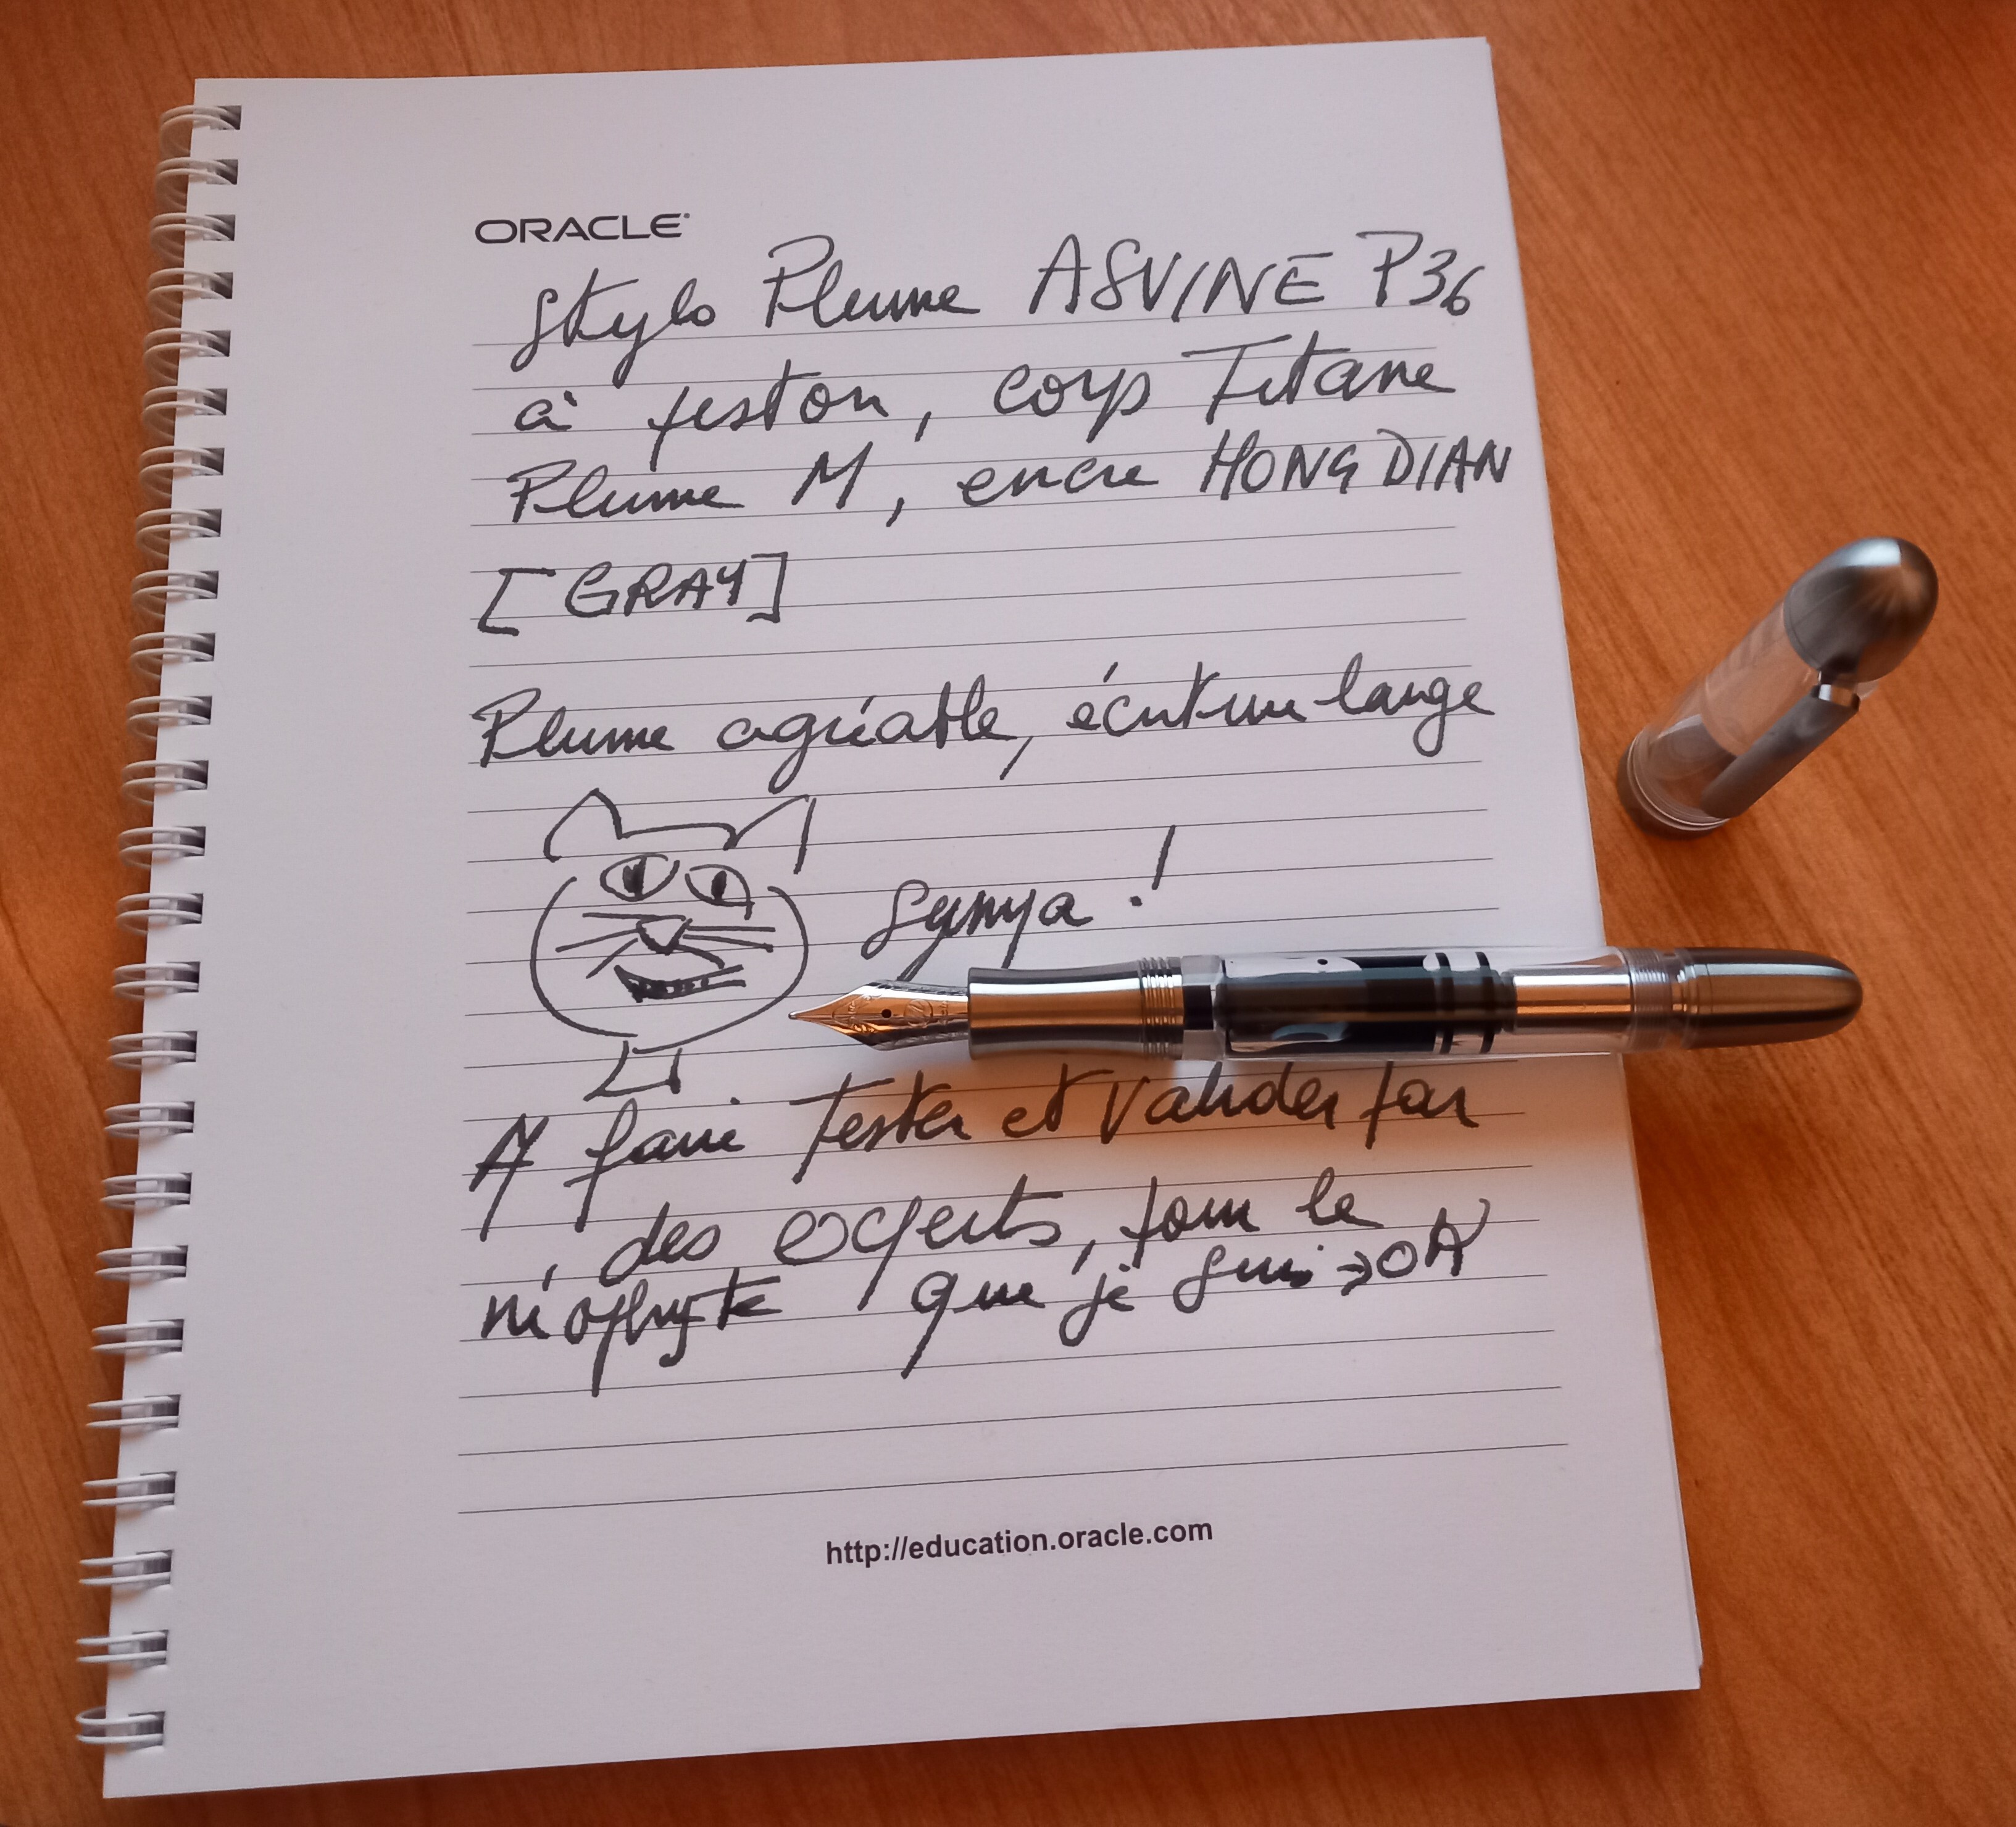 ORACLE
Stylo Plume ASVINE P36
à piston, corps Titane
Plume M, encre HONGDIAN
[GRAY]
Plume agréable, écriture large
Synya !
A faire tester et valider par
des experts, pour le
néophyte que je suis => OK
http://education.oracle.com